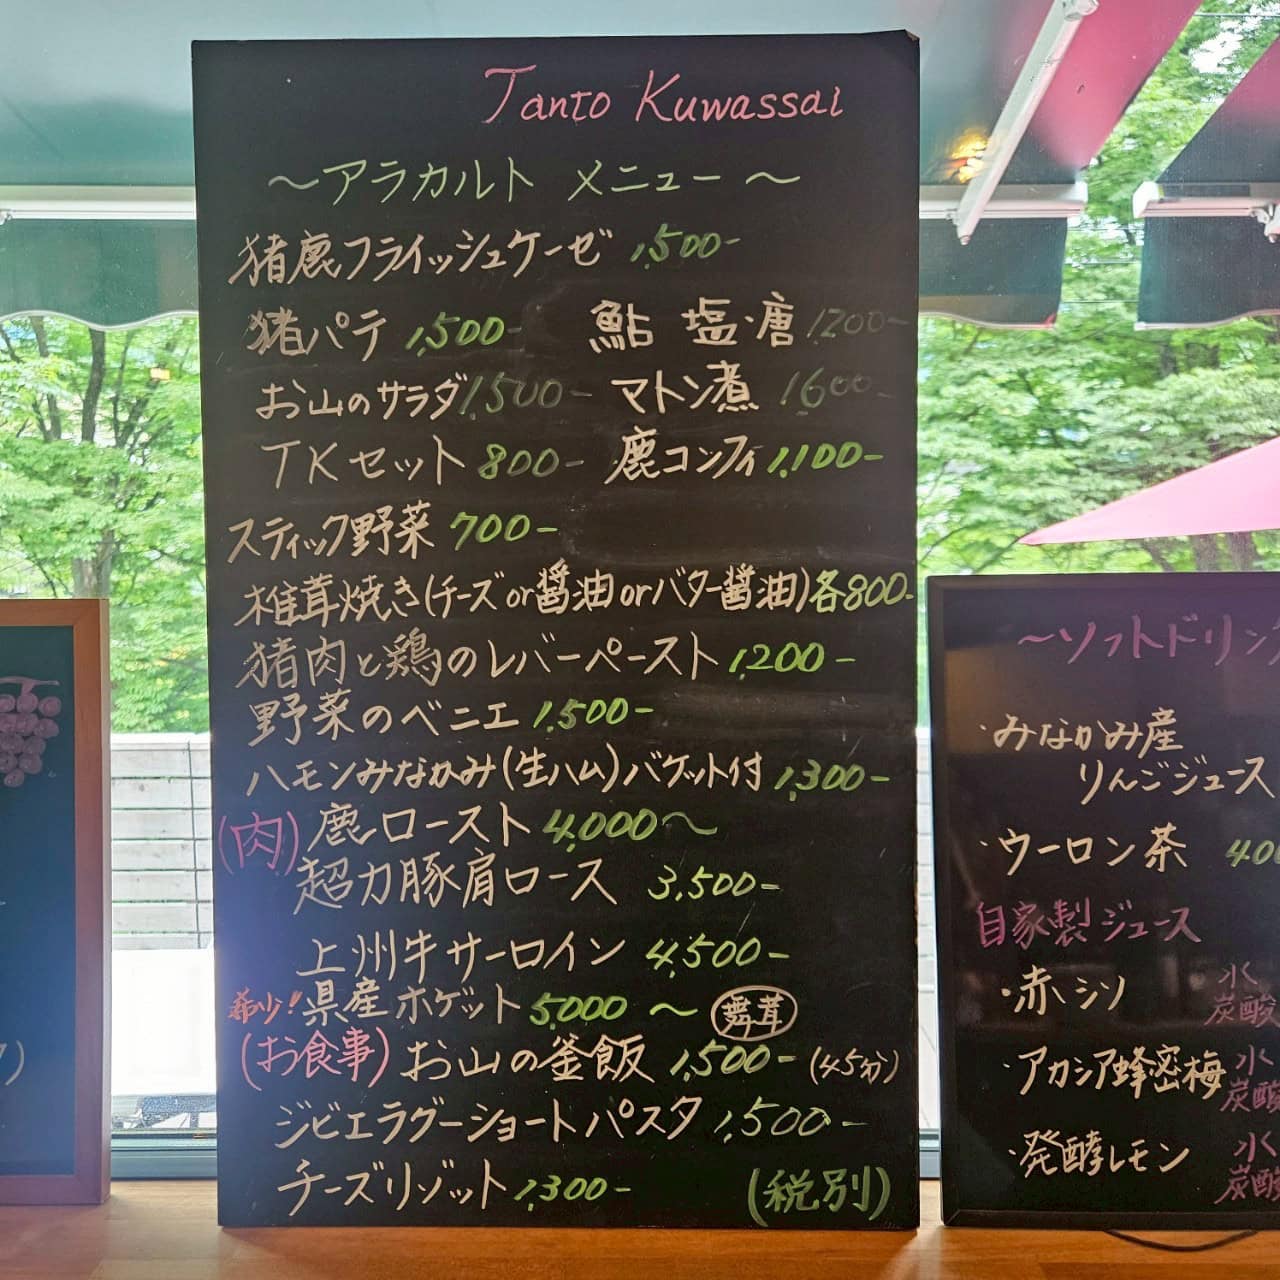 Tanto Kuwassai
～アラカルト メニュー～
猪鹿フライッシュケーゼ 1,500-
猪パテ 1,500- 鮎 塩・唐 1,200-
お山のサラダ 1,500- マトン煮 1,600-
TKセット 800- 鹿コンフィ 1,100-
スティック野菜 700-
椎茸焼き(チーズor醤油orバター醤油)各800-
猪肉と鶏のレバーペースト 1,200-
野菜のベニエ 1,500-
ハモンみなかみ(生ハム)バケット付 1,300-
(肉) 鹿ロースト 4,000～
超力豚肩ロース 3,500-
上州牛サーロイン 4,500-
希少! 県産ホゲット 5,000～ 舞茸
(お食事) お山の釜飯 1,500- (45分)
ジビエラグーショートパスタ 1,500-
チーズリゾット 1,300- (税別)
～ソフトドリン
・みなかみ産
りんごジュース
・ウーロン茶 400
自家製ジュース
・赤シソ 水
炭酸
・アカシア蜂蜜梅 水
炭酸
・発酵レモン 水
炭酸